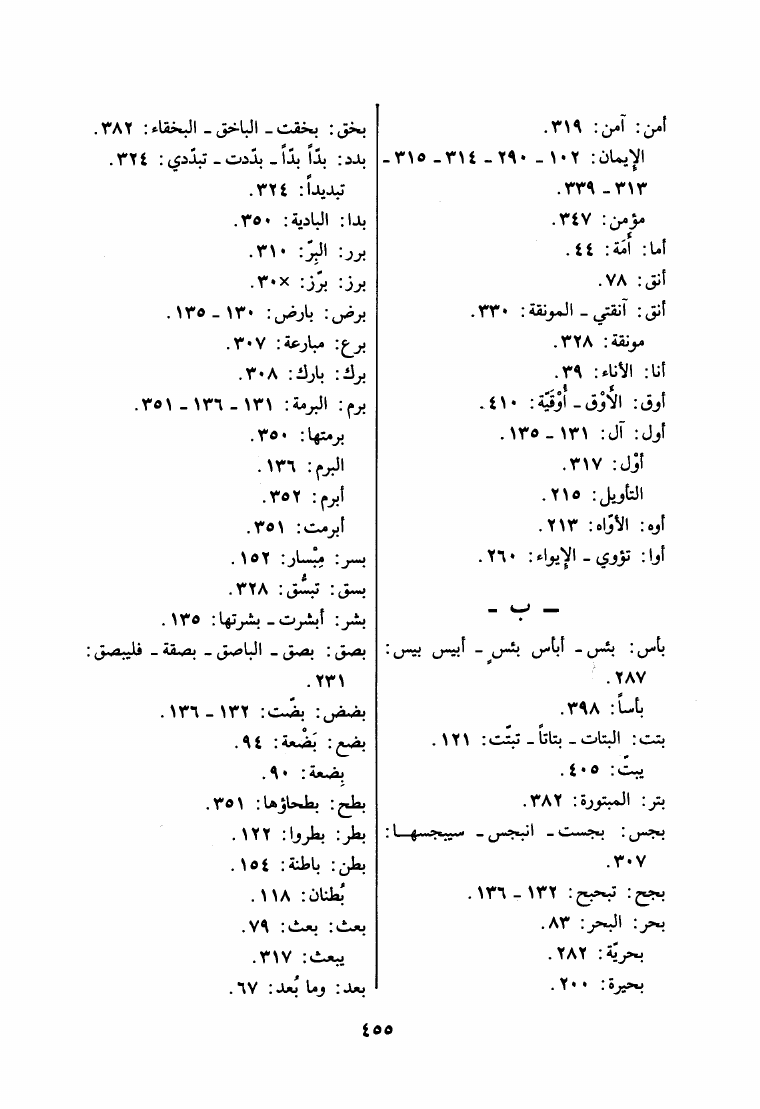 أمن: آمن: ٣١٩.
الإيمان: ١٠٢ ـ ٢٩٠ ـ ٣١٤ ـ ٣١٥ ـ
٣١٣ ـ ٣٣٩.
مؤمن: ٣٤٧.
أما: أَمَة: ٤٤.
أنق: ٧٨.
أنق: آنقتي ـ المونقة: ٣٣٠.
مونقة: ٣٢٨.
أنا: الأناء: ٣٩.
أوق: الأَوْق ـ أُوْقَيّة: ٤١٠.
أول: آل: ١٣١ ـ ١٣٥.
أوْل: ٣١٧.
التأويل: ٢١٥.
أوه: الأوّاه: ٢١٣.
أوا: تؤوي ـ الإيواء: ٢٦٠.
ـ ب ـ
بأس: بئس ـ أبأس بئس ـ أبيس بيس:
٢٨٧.
بأساً: ٣٩٨.
بتت: البتات ـ بتاتاً ـ تبتّت: ١٢١.
يبتّ: ٤٠٥.
بتر: المبتورة: ٣٨٢.
بجس: بجست ـ انبجس ـ سيبجسها:
٣٠٧.
بجح: تبحبح: ١٣٢ ـ ١٣٦.
بحر: البحر: ٨٣.
بحريّة: ٢٨٢.
بحيرة: ٢٠٠.
بخق: بخقت ـ الباخق ـ البخقاء: ٣٨٢.
بدد: بدّاً بدّاً ـ بدّدت ـ تبدّدي: ٣٢٤.
تبديداً: ٣٢٤.
بدا: البادية: ٣٥٠.
برر: البِرّ: ٣١٠.
برز: برّز: ٣٠×.
برض: بارض: ١٣٠ ـ ١٣٥.
برع: مبارعة: ٣٠٧.
برك: بارك: ٣٠٨.
برم: البرمة: ١٣١ ـ ١٣٦ ـ ٣٥١.
برمتها: ٣٥٠.
البرم: ١٣٦.
أبرم: ٣٥٢.
أبرمت: ٣٥١.
بسر: مِبْسار: ١٥٢.
بسق: تبسُّق: ٣٢٨.
بشر: أبشرت ـ بشرتها: ١٣٥.
بصق: بصق ـ الباصق ـ بصقة ـ فليبصق:
٢٣١.
بضض: بضّت: ١٣٢ ـ ١٣٦.
بضع: بَضْعة: ٩٤.
بِضعة: ٩٠.
بطح: بطحاؤها: ٣٥١.
بطر: بطروا: ١٢٢.
بطن: باطنة: ١٥٤.
بُطنان: ١١٨.
بعث: بعث: ٧٩.
يبعث: ٣١٧.
بعد: وما بُعد: ٦٧.
٤٥٥